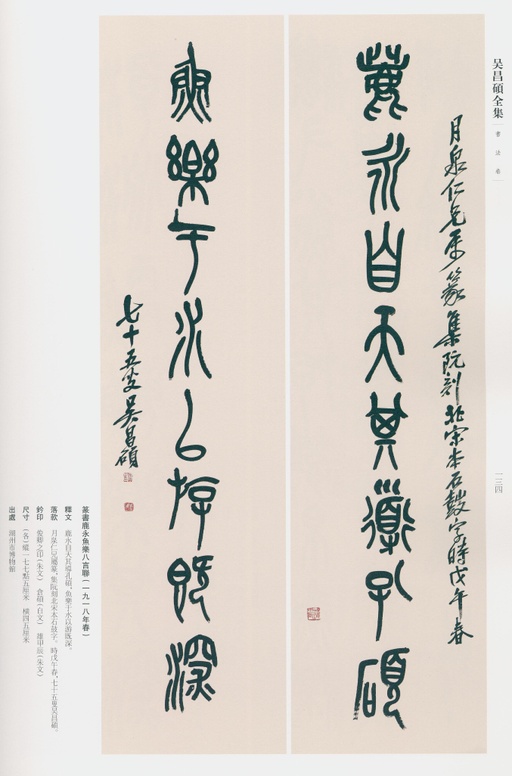 吴昌碩全集
書法卷
一三四
月泉仁兄屬篆集阮刻北宋本石鼓字時戊午春
鹿永自天其導孔碩
魚樂于水以游既深
七十五叟吴昌碩
篆書鹿永魚樂八言聯（一九一八年春）
釋文 鹿永自天其導孔碩，魚樂于水以游既深。
落款 月泉仁兄屬篆，集阮刻北宋本石鼓字。時戊午春，七十五叟吴昌碩。
鈐印 俊卿之印（朱文） 倉碩（白文） 雄甲辰（朱文）
尺寸 （各）縱一七七點五厘米 橫四五厘米
出處 湖州市博物館